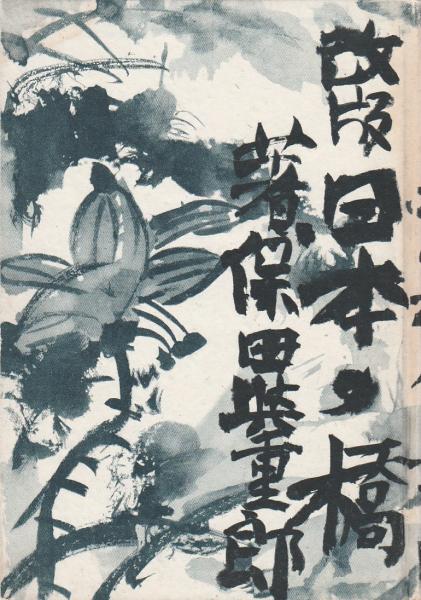 改版日本の橋
保田與重郎著